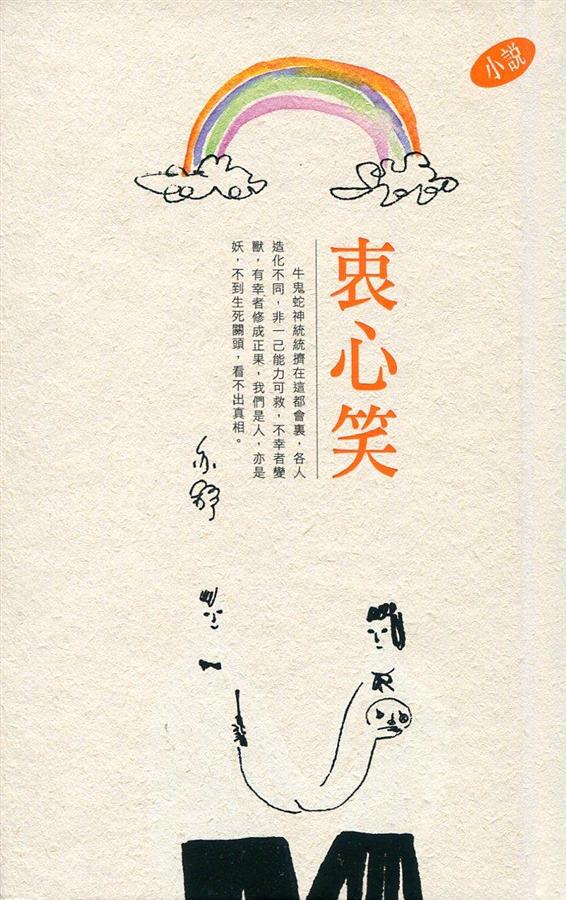 小說
衷心笑
牛鬼蛇神統統擠在這都會裏，各人
造化不同，非一己能力可救，不幸者變
獸，有幸者修成正果，我們是人，亦是
妖，不到生死關頭，看不出真相。
亦舒